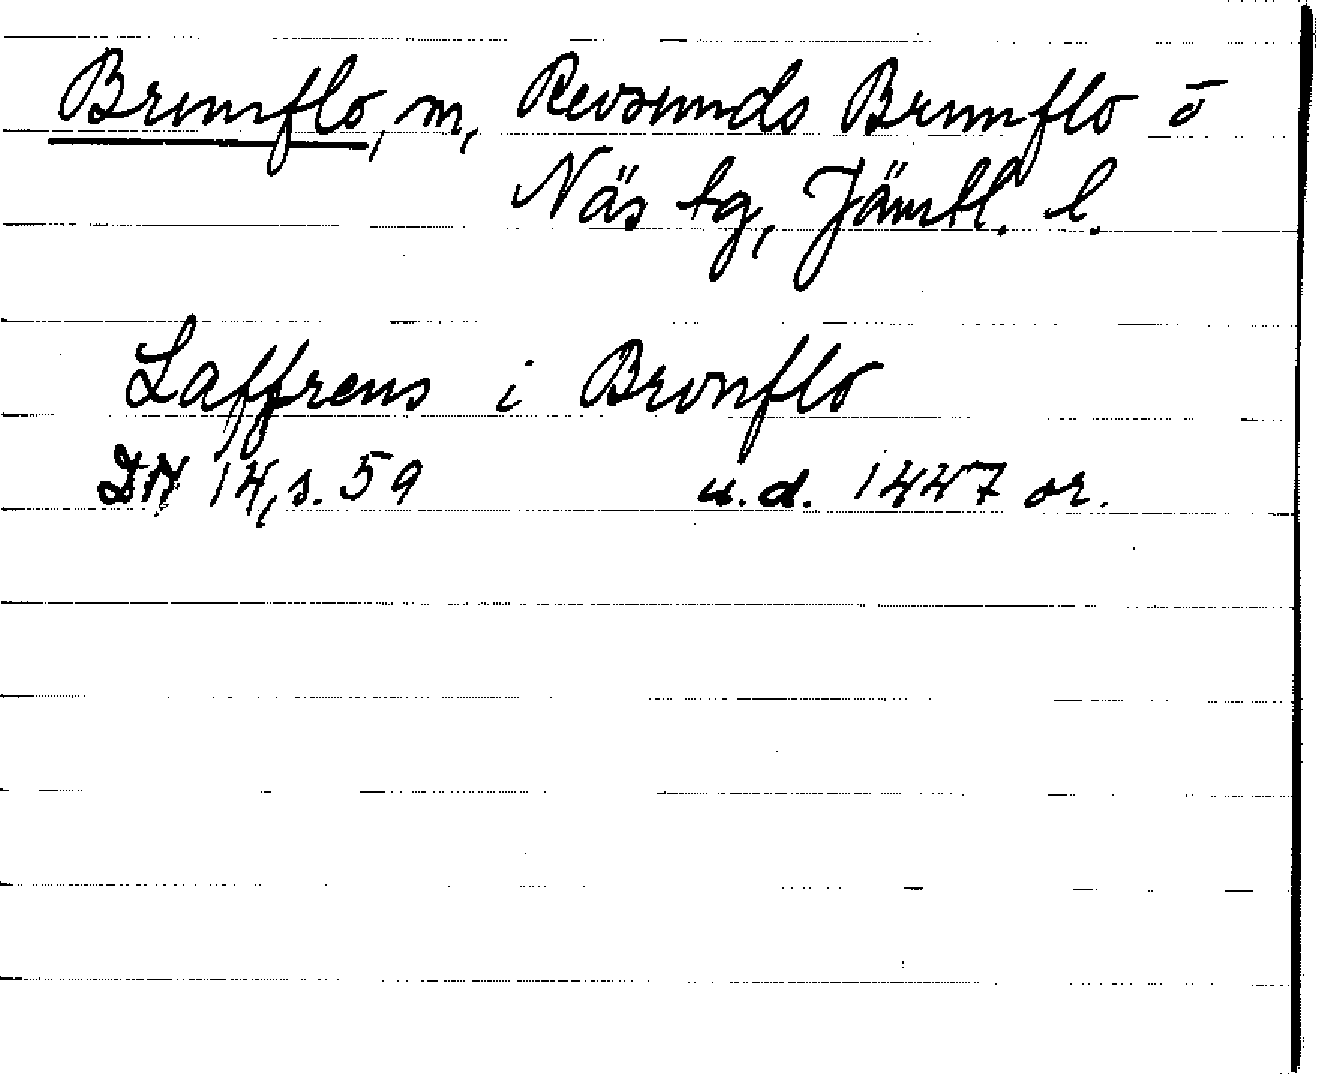 Brunflo, m, Revsunds Brunflo o
Näs tg, Jämtl. l.
Laffrens i Bronflo
DN 14, s. 59 u.d. 1447 or.